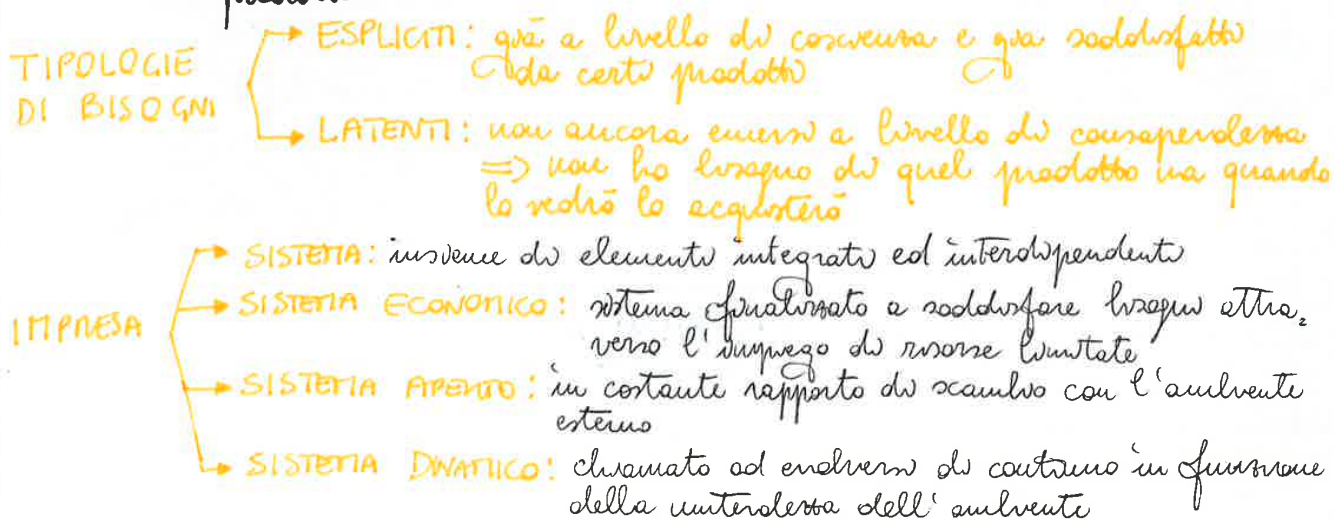 TIPOLOGIE DI BISOGNI
ESPLICITI: già a livello di coscienza e già soddisfatti
da certi prodotti
LATENTI: non ancora emersi a livello di consapevolezza
=> non ho bisogno di quel prodotto ma quando
lo vedrò lo acquisterò
IMPRESA
SISTEMA: insieme di elementi integrati ed interdipendenti
SISTEMA ECONOMICO: sistema finalizzato a soddisfare bisogni attra-
verso l'impiego di risorse limitate
SISTEMA APERTO: in costante rapporto di scambio con l'ambiente
esterno
SISTEMA DINAMICO: chiamato ad evolversi di continuo in funzione
della mutevolezza dell'ambiente